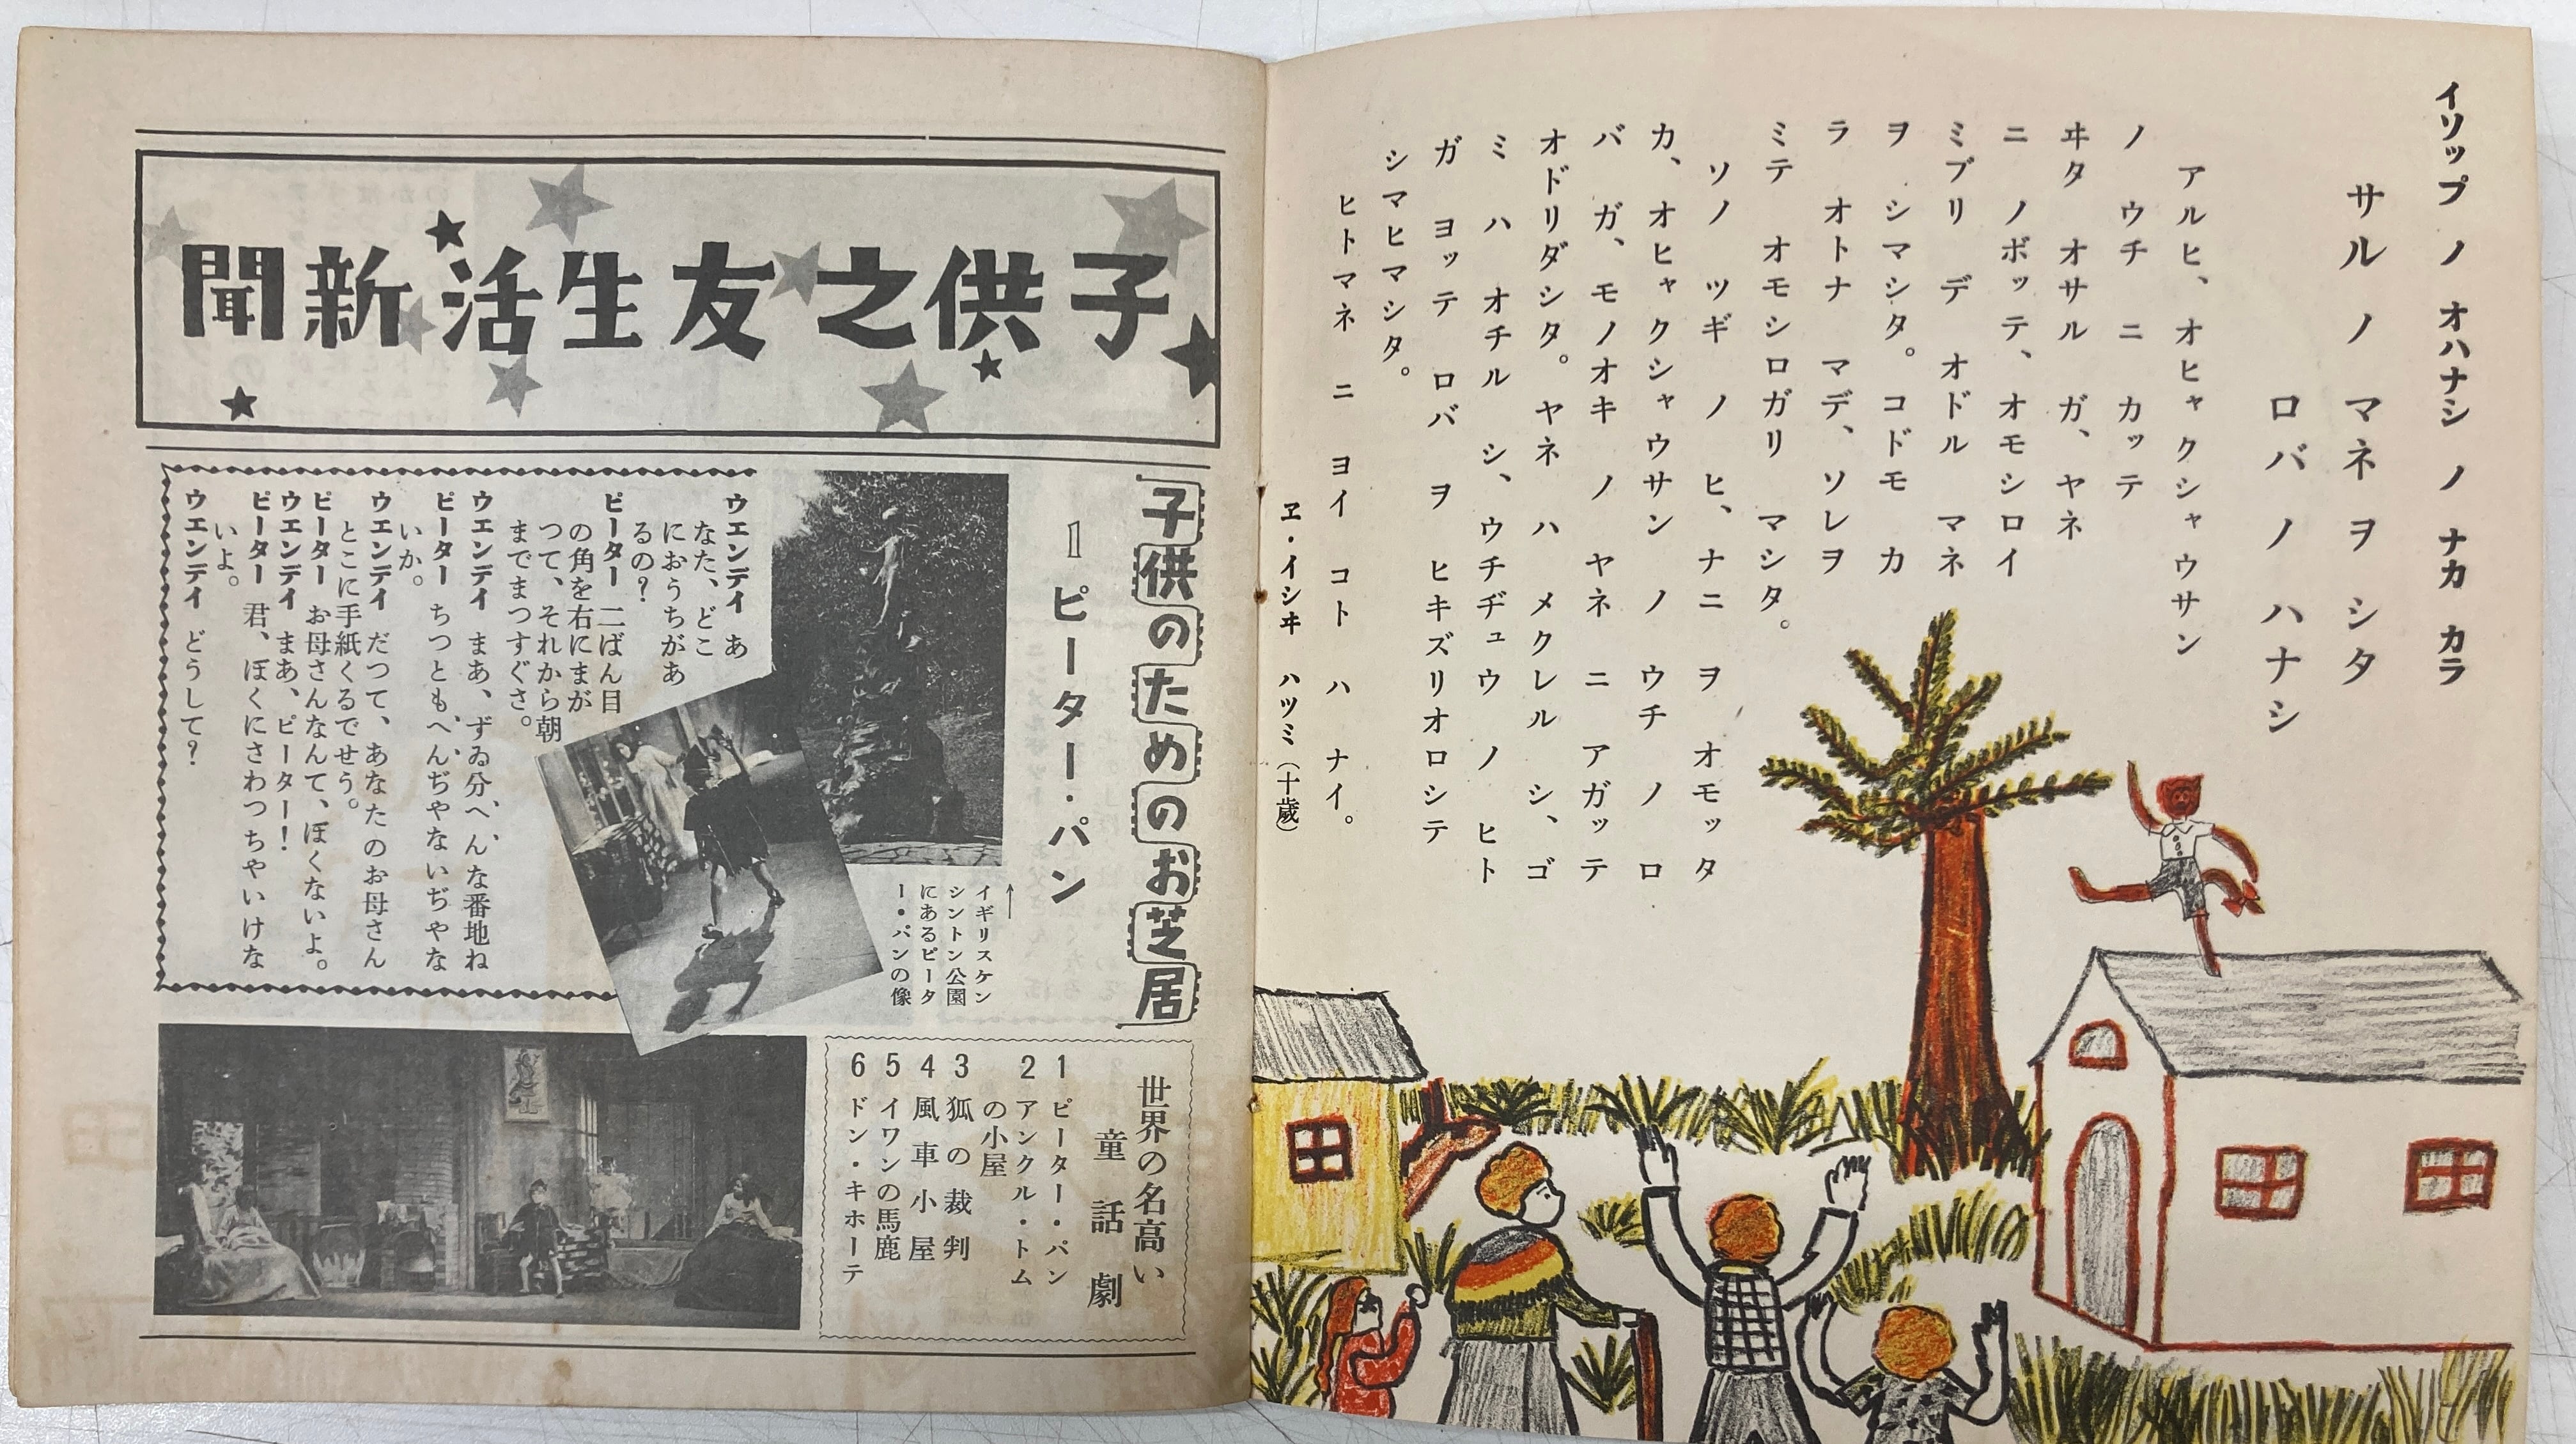 イソップ ノ オハナシ ノ ナカ カラ
サル ノ マネ ヲ シタ
ロバ ノ ハナシ
アルヒ、オヒャクシャウサン
ノ ウチ ニ カッテ
ヰタ オサル ガ、ヤネ
ニ ノボッテ、オモシロイ
ミブリ デ オドル マネ
ヲ シマシタ。コドモ カ
ラ オトナ マデ、ソレヲ
ミテ オモシロガリ マシタ。
ソノ ツギ ノ ヒ、ナニ ヲ オモッタ
カ、オヒャクシャウサン ノ ウチ ノ ロ
バ ガ、モノオキ ノ ヤネ ニ アガッテ
オドリダシタ。ヤネ ハ メクレル シ、ゴ
ミ ハ オチル シ、ウチヂュウ ノ ヒト
ガ ヨッテ ロバ ヲ ヒキズリオロシテ
シマヒマシタ。
ヒトマネ ニ ヨイ コト ハ ナイ。
ヱ・イシヰ ハツミ(十歳)
子供之友生活新聞
子供のためのお芝居
1 ピーター・パン
↑
イギリスケン
シントン公園
にあるピータ
ー・パンの像
ウエンデイ あ
なた、どこ
におうちがあ
るの?
ピーター 二ばん目
の角を右にまが
つて、それから朝
までまつすぐさ。
ウエンデイ まあ、ずゐ分へ、ん、な番地ね
ピーター ちつとも、へ、ん、ぢやないぢやな
いか。
ウエンデイ だつて、あなたのお母さん
とこに手紙くるでせう。
ピーター お母さんなんて、ぼくないよ。
ウエンデイ まあ、ピーター!
ピーター 君、ぼくにさわつちやいけな
いよ。
ウエンデイ どうして?
世界の名高い
童話劇
1 ピーター・パン
2 アンクル・トム
の小屋
3 狐の裁判
4 風車小屋
5 イワンの馬鹿
6 ドン・キホーテ